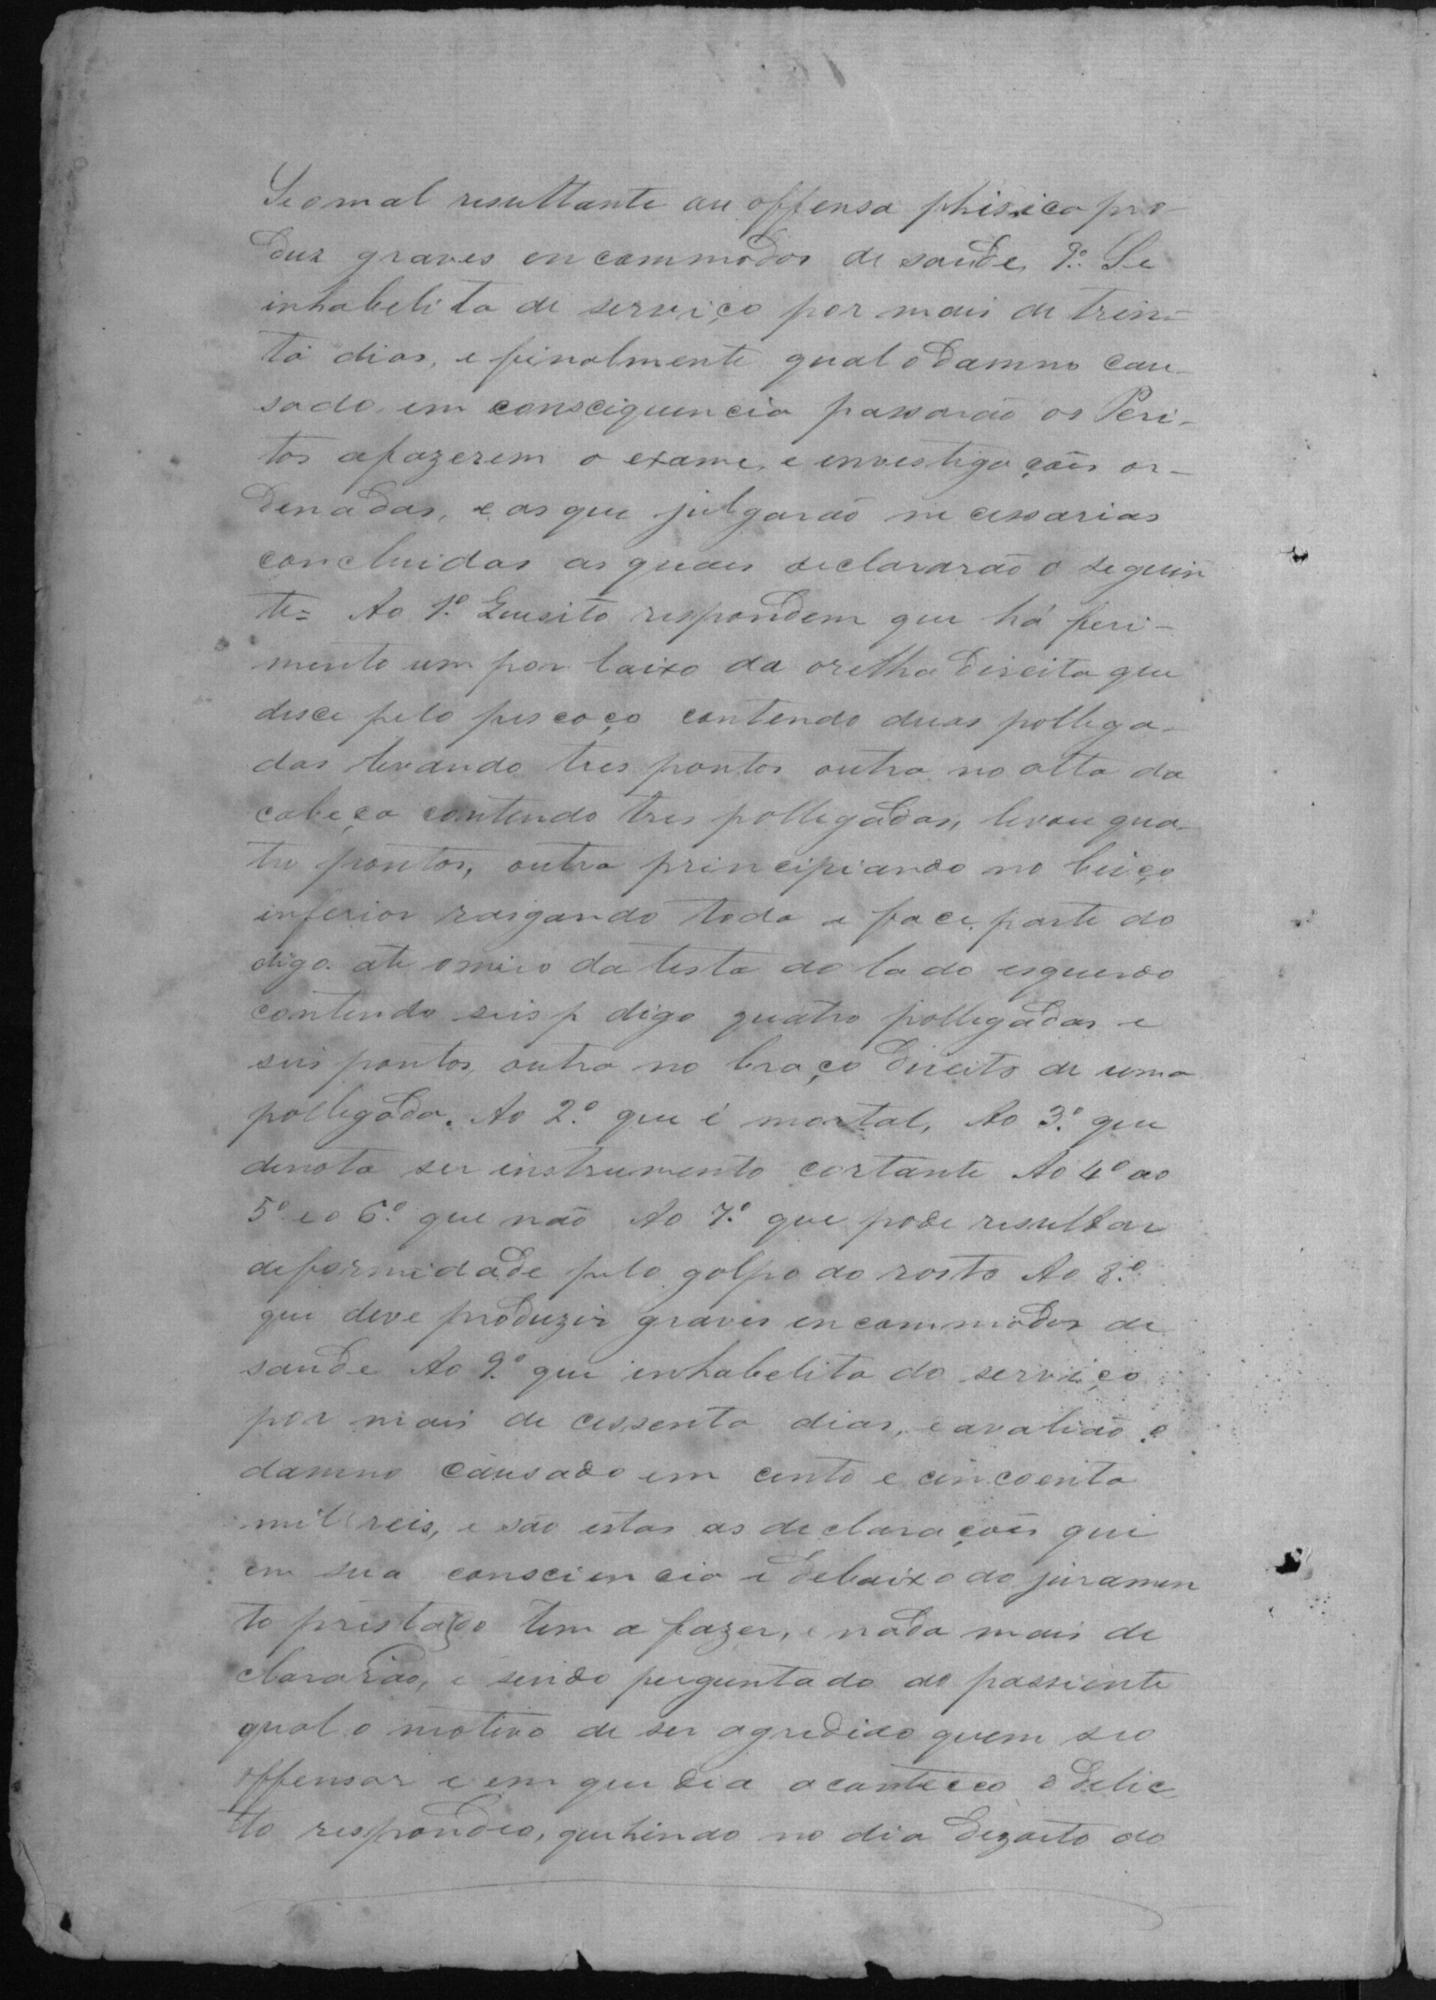 Se o mal resultante ou offensa phisica pro-
duz graves encommodos de saude, 9º Se
inhabelita de serviço por mais de trin-
ta dias, e finalmente qual o damno cau-
sado, em consciquencia passarão os Peri-
tos a fazerem o exame, e envestigações or-
denadas, e as que julgarão necessarias
concluidas as quaes declararão o seguin
te= Ao 1º Quesito respondem que há feri-
mento um por baixo da orelha direita que
desce pelo pescoço contendo duas pollega-
das levando tres pontos outro no alto da
cabeça contendo tres pollegadas, levou qua-
tro pontos, outro principiando no beiço
inferior rasgando toda a face, parte do
digo até o meio da testa do lado esquerdo
contendo seis p digo quatro pollegadas e
seis pontos, outro no braço direito de uma
pollegada. Ao 2º que é mortal, Ao 3º que
denota ser instrumento cortante Ao 4º ao
5º e o 6º que não Ao 7º que pode resultar
deformidade pelo golpo do rosto Ao 8º
que deve produzir graves encommodos de
saude Ao 9º que inhabelita do serviço
por mais de cessenta dias, e avalião o
damno causado em cento e cincoenta
mil reis, e são estas as declarações que
em sua consciencia e debaixo do juramen
to prestado tem a fazer, e nada mais de
clararão, e sendo perguntado ao passiente
qual o motivo de ser agredido quem seo
offensor e em que dia aconteceo o delic
to respondeo, que hindo no dia dezoito do